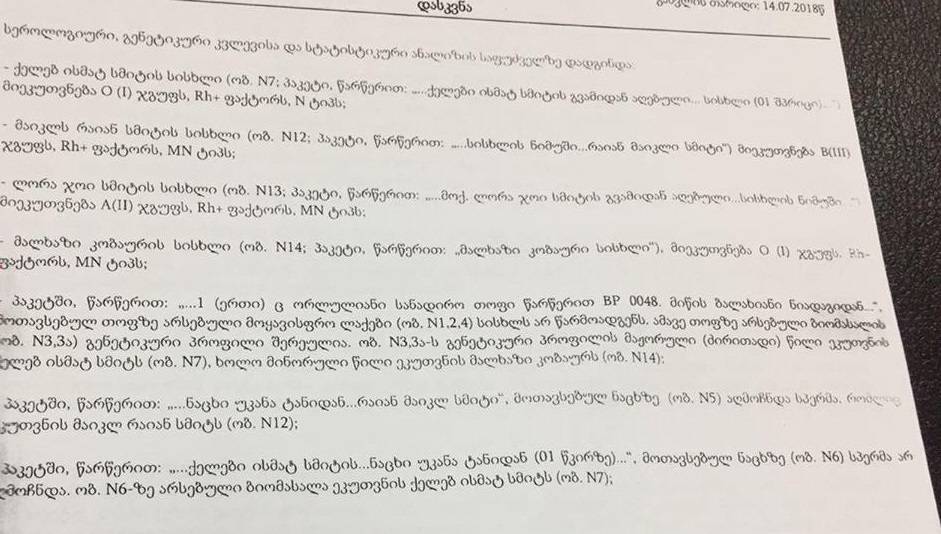 დასკვნა
გაცემის თარიღი: 14.07.2018წ
სეროლოგიური, გენეტიკური კვლევისა და სტატისტიკური ანალიზის საფუძველზე დადგინდა:
- ქელებ ისმატ სმიტის სისხლი (ობ. N7; პაკეტი, წარწერით: „...ქელები ისმატ სმიტის გვამიდან აღებული... სისხლი (01 შპრიცი)...")
მიეკუთვნება O (I) ჯგუფს, Rh+ ფაქტორს, N ტიპს;
- მაიკლს რაიან სმიტის სისხლი (ობ. N12; პაკეტი, წარწერით: „...სისხლის ნიმუში...რაიან მაიკლი სმიტი") მიეკუთვნება B(III)
ჯგუფს, Rh+ ფაქტორს, MN ტიპს;
- ლორა ჯოი სმიტის სისხლი (ობ. N13; პაკეტი, წარწერით: „...მოქ. ლორა ჯოი სმიტის გვამიდან აღებული...სისხლის ნიმუში...")
მიეკუთვნება A(II) ჯგუფს, Rh+ ფაქტორს, MN ტიპს;
- მალხაზი კობაურის სისხლი (ობ. N14; პაკეტი, წარწერით: „მალხაზი კობაური სისხლი"), მიეკუთვნება O (I) ჯგუფს, Rh-
ფაქტორს, MN ტიპს;
- პაკეტში, წარწერით: „...1 (ერთი) ც ორლულიანი სანადირო თოფი წარწერით BP 0048. მიწის ბალახიანი ნიადაგიდან...",
მოთავსებულ თოფზე არსებული მოყავისფრო ლაქები (ობ. N1,2,4) სისხლს არ წარმოადგენს. ამავე თოფზე არსებული ბიომასალის
(ობ. N3,3ა) გენეტიკური პროფილი შერეულია. ობ. N3,3ა-ს გენეტიკური პროფილის მაჟორული (ძირითადი) წილი ეკუთვნის
ქელებ ისმატ სმიტს (ობ. N7), ხოლო მინორული წილი ეკუთვნის მალხაზი კობაურს (ობ. N14);
პაკეტში, წარწერით: „...ნაცხი უკანა ტანიდან...რაიან მაიკლ სმიტი", მოთავსებულ ნაცხზე (ობ. N5) აღმოჩნდა სპერმა, რომელიც
ეკუთვნის მაიკლ რაიან სმიტს (ობ. N12);
პაკეტში, წარწერით: „...ქელები ისმატ სმიტის...ნაცხი უკანა ტანიდან (01 წკირზე)...", მოთავსებულ ნაცხზე (ობ. N6) სპერმა არ
აღმოჩნდა. ობ. N6-ზე არსებული ბიომასალა ეკუთვნის ქელებ ისმატ სმიტს (ობ. N7);